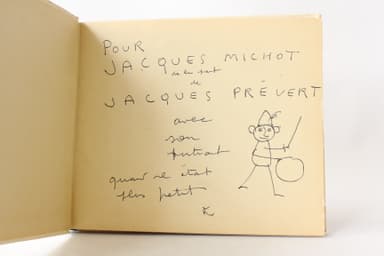 POUR
JACQUES MICHOT
de la part
de
JACQUES PRÉVERT
avec
son
portrait
quand il était
plus petit